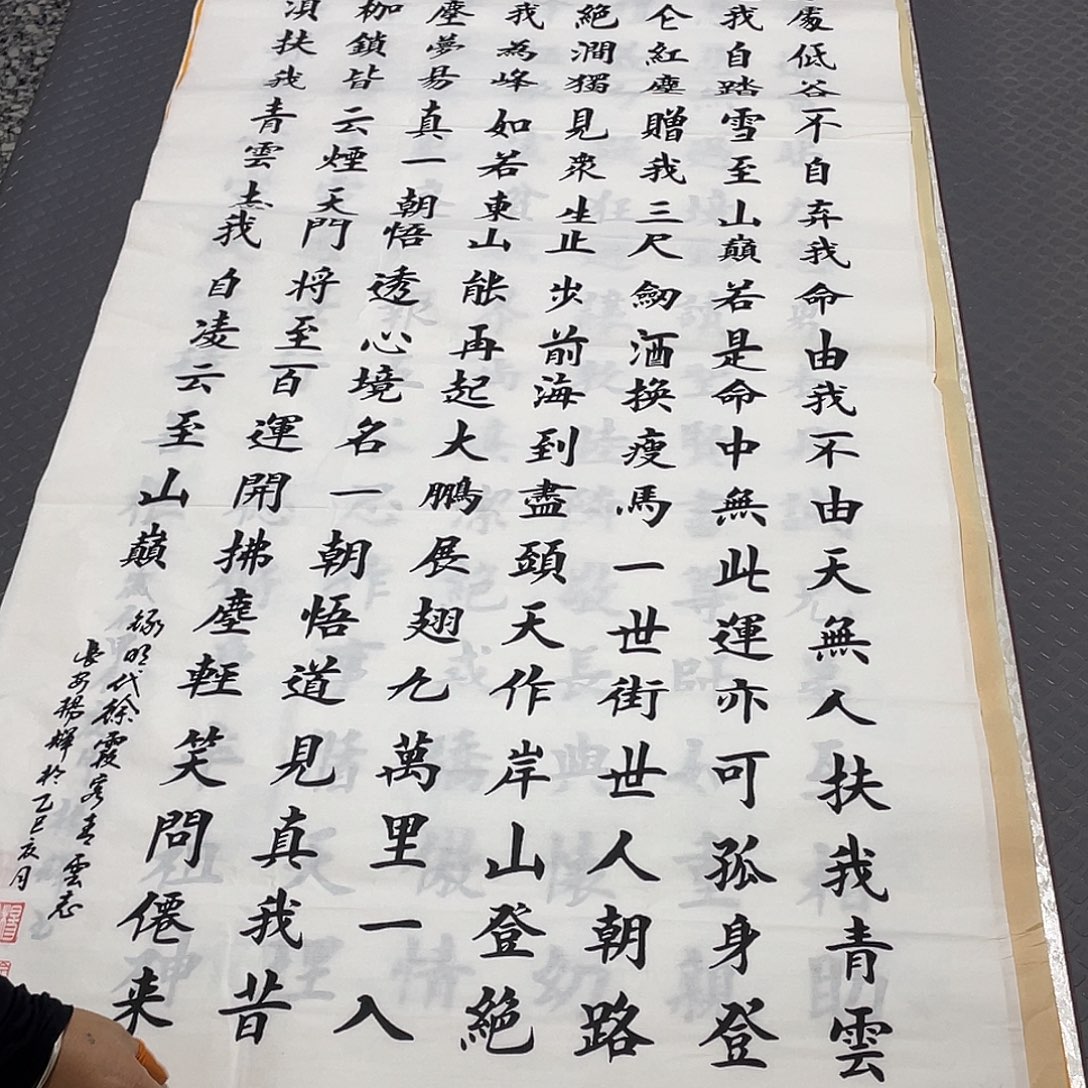 處低谷不自弃我命由我不由天無人扶我青雲
我自踏雪至山巔若是命中無此運亦可孤身登
仑紅塵贈我三尺劒酒換瘦馬一世街世人朝路
絕澗獨見衆生止步前海到盡頭天作岸山登絕
我為峰如若東山能再起大鵬展翅九萬里一入
塵夢易真一朝悟透心境名一朝悟道見真我昔
枷鎖皆云煙天門将至百運開拂塵輕笑問僊来
湏扶我青雲志我自凌云至山巔
録明代徐霞客青雲志
長安楊輝於乙巳亥月